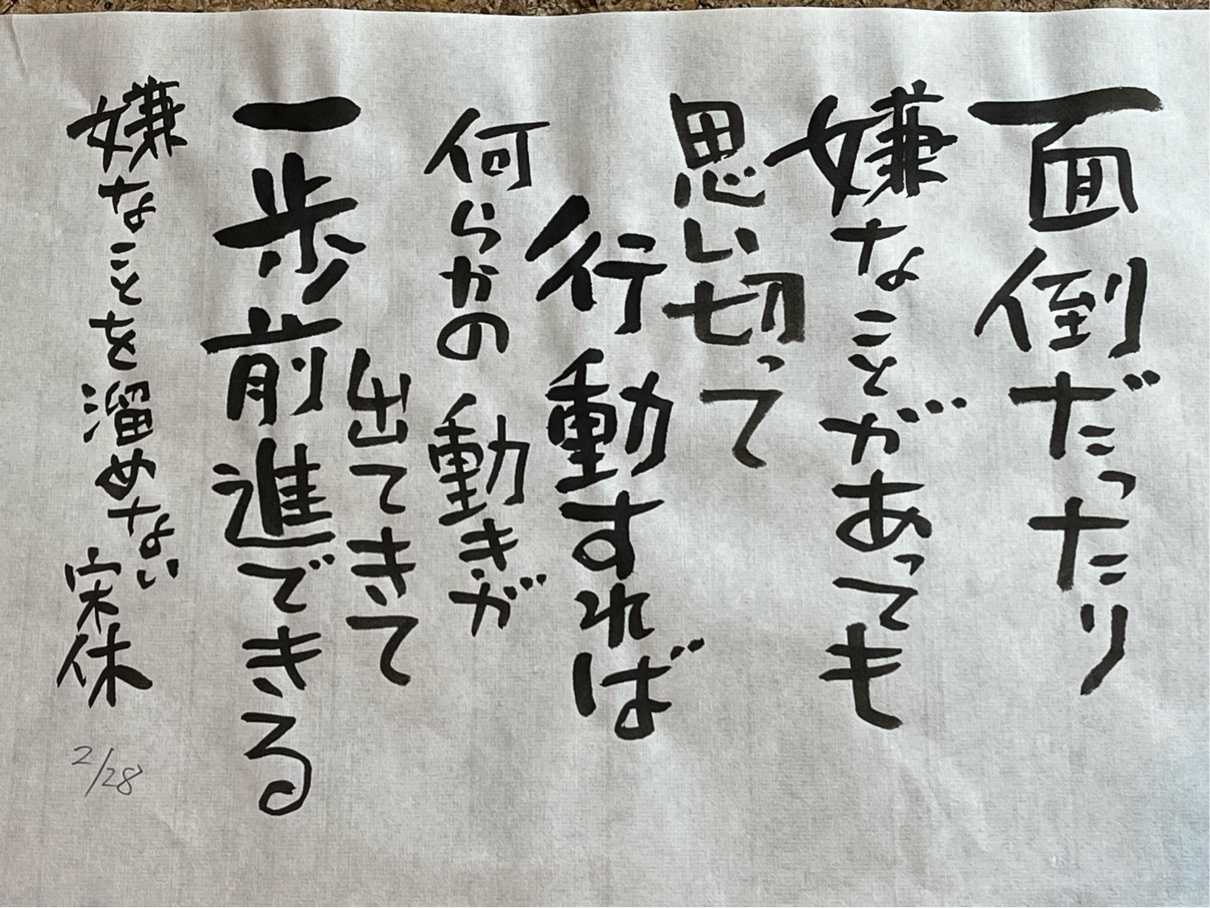 面倒だったり
嫌なことがあっても
思い切って
行動すれば
何らかの動きが
出てきて
一歩前進できる
嫌なことを溜めない
宋休
2/28